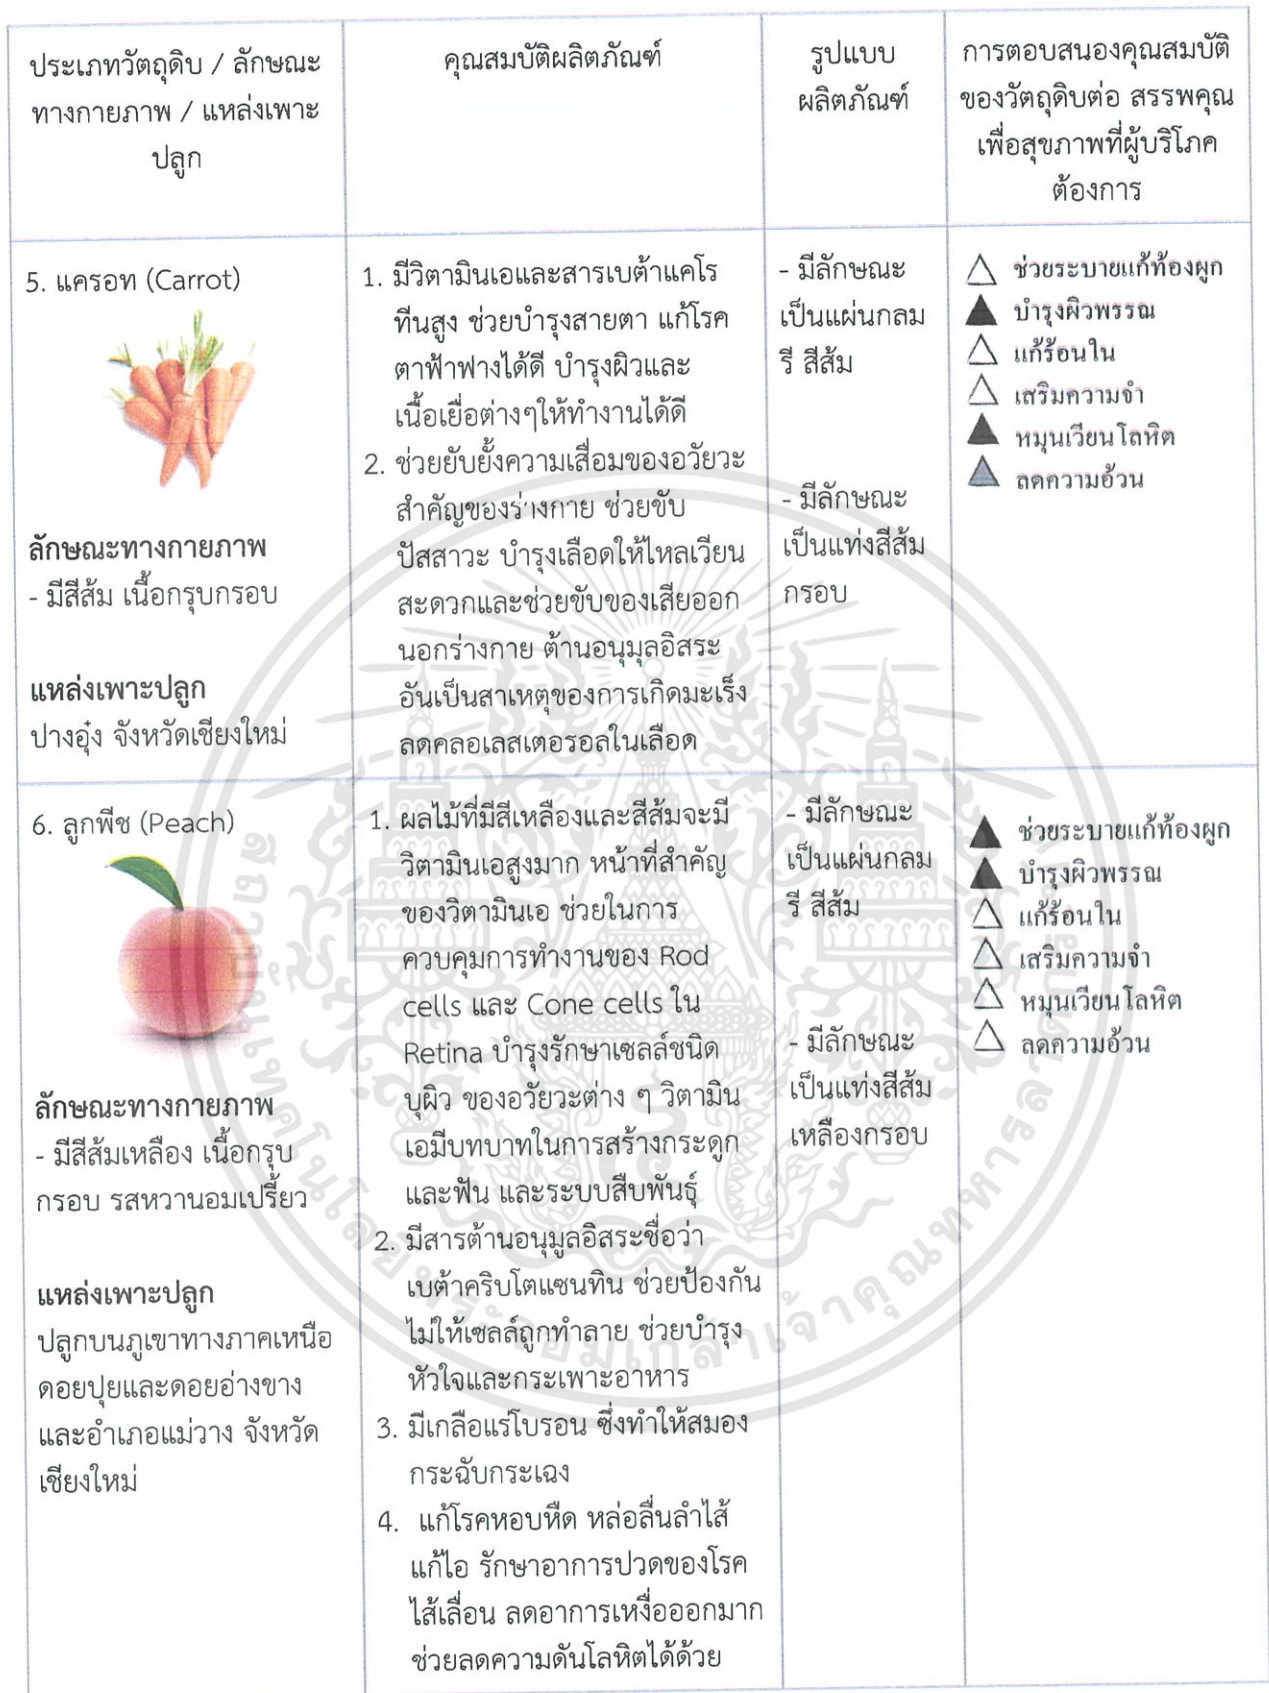 ประเภทวัตถุดิบ / ลักษณะ
ทางกายภาพ / แหล่งเพาะ
ปลูก
คุณสมบัติผลิตภัณฑ์
รูปแบบ
ผลิตภัณฑ์
การตอบสนองคุณสมบัติ
ของวัตถุดิบต่อ สรรพคุณ
เพื่อสุขภาพที่ผู้บริโภค
ต้องการ
5. แครอท (Carrot)
ลักษณะทางกายภาพ
- มีสีส้ม เนื้อกรุบกรอบ
แหล่งเพาะปลูก
ปางอุ๋ง จังหวัดเชียงใหม่
1. มีวิตามินเอและสารเบต้าแคโร
ทีนสูง ช่วยบำรุงสายตา แก้โรค
ตาฟ้าฟางได้ดี บำรุงผิวและ
เนื้อเยื่อต่างๆให้ทำงานได้ดี
2. ช่วยยับยั้งความเสื่อมของอวัยวะ
สำคัญของร่างกาย ช่วยขับ
ปัสสาวะ บำรุงเลือดให้ไหลเวียน
สะดวกและช่วยขับของเสียออก
นอกร่างกาย ต้านอนุมุลอิสระ
อันเป็นสาเหตุของการเกิดมะเร็ง
ลดคลอเลสเตอรอลในเลือด
- มีลักษณะ
เป็นแผ่นกลม
รี สีส้ม
- มีลักษณะ
เป็นแท่งสีส้ม
กรอบ
ช่วยระบายแก้ท้องผูก
บำรุงผิวพรรณ
แก้ร้อนใน
เสริมความจำ
หมุนเวียนโลหิต
ลดความอ้วน
6. ลูกพีช (Peach)
ลักษณะทางกายภาพ
- มีสีส้มเหลือง เนื้อกรุบ
กรอบ รสหวานอมเปรี้ยว
แหล่งเพาะปลูก
ปลูกบนภูเขาทางภาคเหนือ
ดอยปุยและดอยอ่างขาง
และอำเภอแม่วาง จังหวัด
เชียงใหม่
1. ผลไม้ที่มีสีเหลืองและสีส้มจะมี
วิตามินเอสูงมาก หน้าที่สำคัญ
ของวิตามินเอ ช่วยในการ
ควบคุมการทำงานของ Rod
cells และ Cone cells ใน
Retina บำรุงรักษาเซลล์ชนิด
บุผิว ของอวัยวะต่าง ๆ วิตามิน
เอมีบทบาทในการสร้างกระดูก
และฟัน และระบบสืบพันธุ์
2. มีสารต้านอนุมูลอิสระชื่อว่า
เบต้าคริบโตแซนทิน ช่วยป้องกัน
ไม่ให้เซลล์ถูกทำลาย ช่วยบำรุง
หัวใจและกระเพาะอาหาร
3. มีเกลือแร่โบรอน ซึ่งทำให้สมอง
กระฉับกระเฉง
4. แก้โรคหอบหืด หล่อลื่นลำไส้
แก้ไอ รักษาอาการปวดของโรค
ไส้เลื่อน ลดอาการเหงื่อออกมาก
ช่วยลดความดันโลหิตได้ด้วย
- มีลักษณะ
เป็นแผ่นกลม
รี สีส้ม
- มีลักษณะ
เป็นแท่งสีส้ม
เหลืองกรอบ
ช่วยระบายแก้ท้องผูก
บำรุงผิวพรรณ
แก้ร้อนใน
เสริมความจำ
หมุนเวียนโลหิต
ลดความอ้วน
สถาบันเทคโนโลยีพระจอมเกล้าเจ้าคุณทหารลาดกระบัง